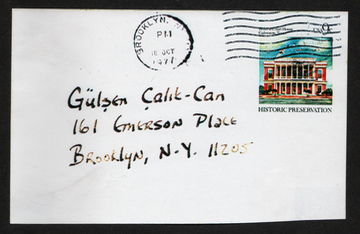 BROOKLYN,
PM
18 OCT
1977
9c
HISTORIC PRESERVATION
Gülşen Çalık-Can
161 Emerson Place
Brooklyn, N.Y. 11205